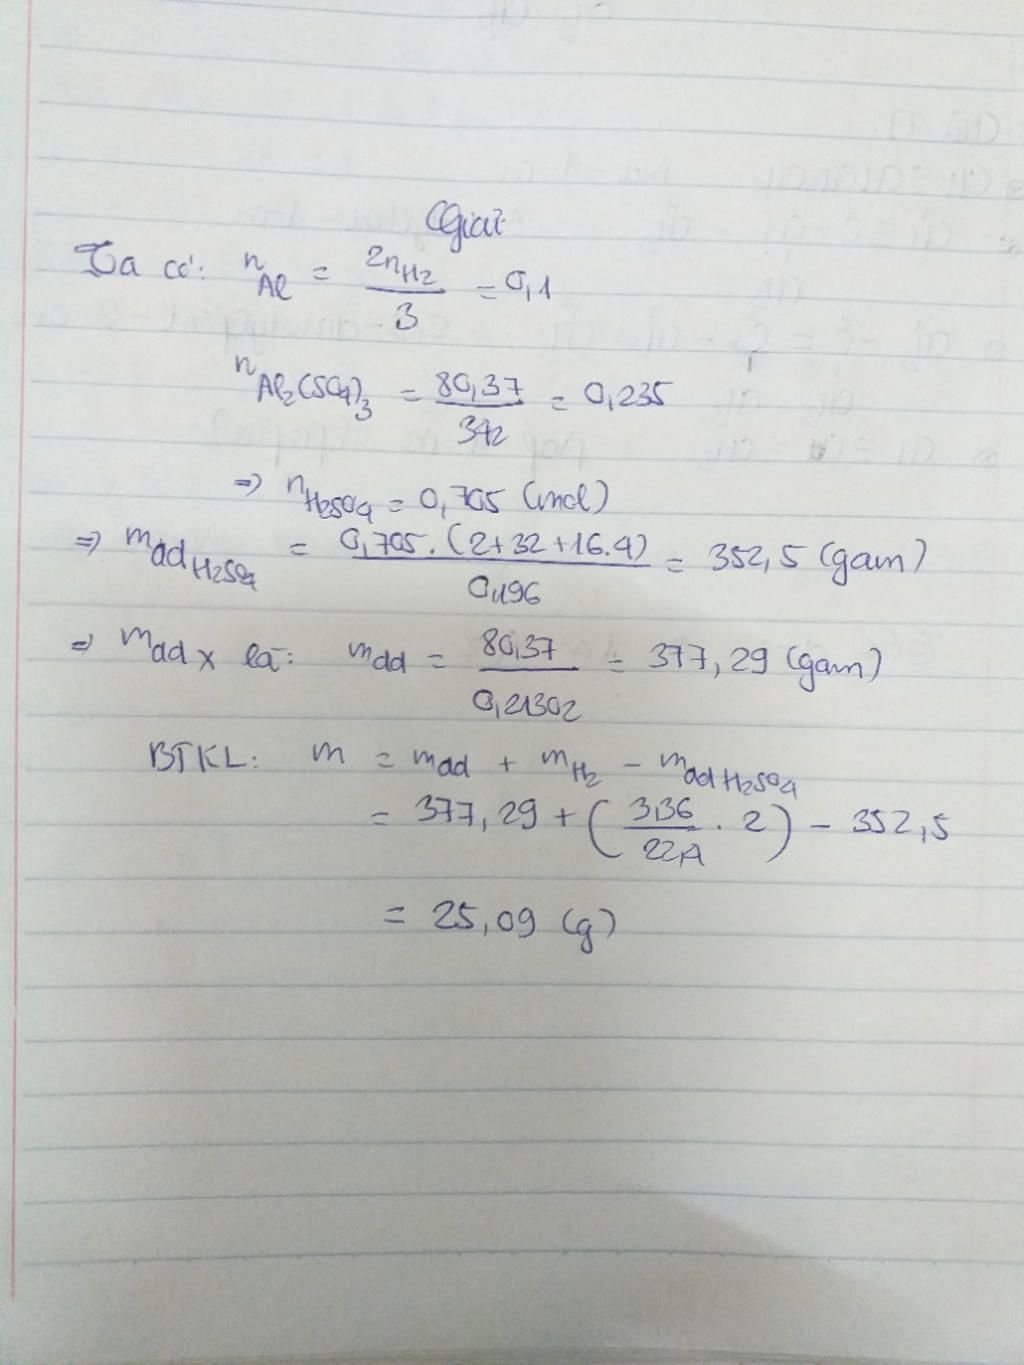 Giải
Ta có: n_Al = 2n_H2 / 3 = 0,1
n_Al2(SO4)3 = 80,37 / 342 = 0,235
=> n_H2SO4 = 0,705 (mol)
=> m_dd H2SO4 = 0,705.(2+32+16.4) / 0,196 = 352,5 (gam)
=> m_dd X là: m_dd = 80,37 / 0,21302 = 377,29 (gam)
BTKL: m = m_dd + m_H2 - m_dd H2SO4
= 377,29 + (3,36 / 22,4 . 2) - 352,5
= 25,09 (g)